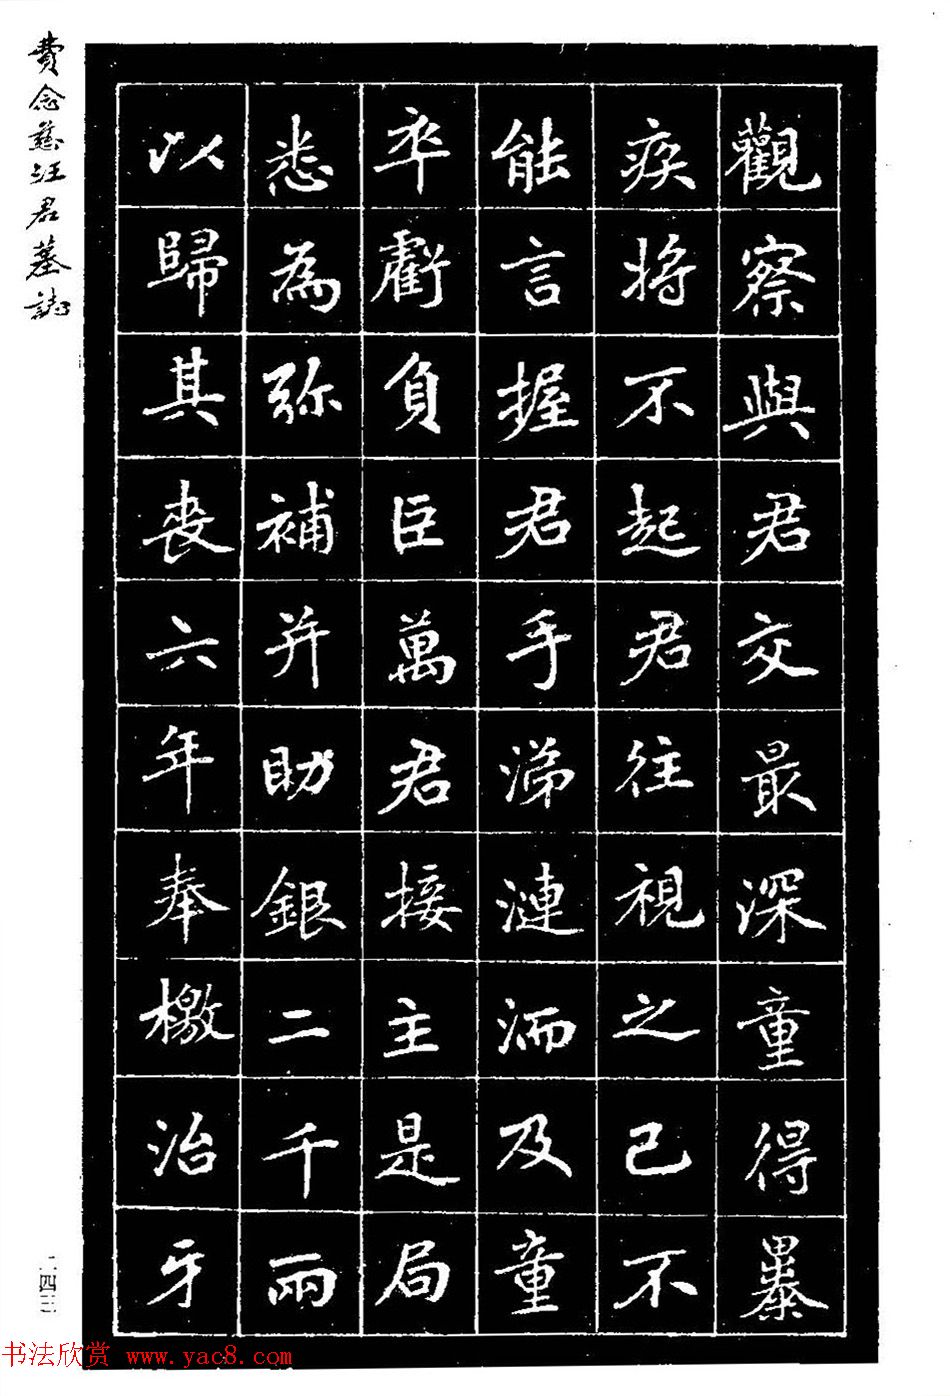 費念慈汪君墓誌
觀察與君交最深童得暴
疾將不起君往視之已不
能言握君手涕漣洏及童
卒虧負臣萬君接主是局
悉為弥補并助銀二千兩
以歸其喪六年奉檄治牙
二四三
书法欣赏 www.yac8.com